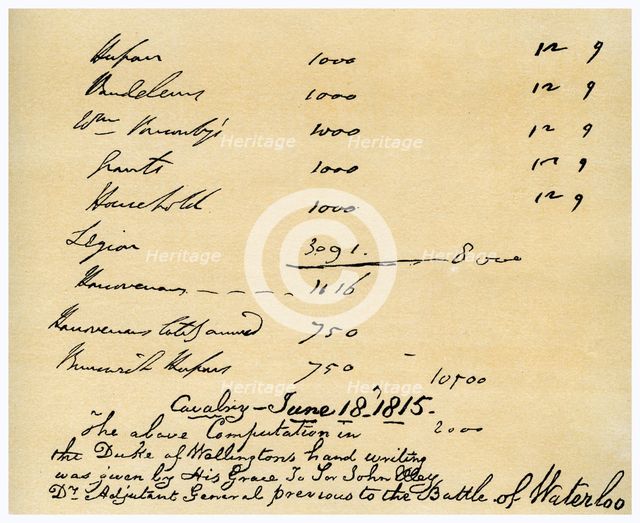 Hussars 1000 12 9
Vandeleurs 1000 12 9
Wm Ponsonby's 1000 12 9
Grants 1000 12 9
Household 1000 12 9
Legion 3091. 8000
Hanoverians - - - - 1616
Hanoverians lately arrived 750
Brunswick Hussars 750 - 10500
Cavalry - June 18, 1815.
The above Computation in 2000
the Duke of Wellingtons hand writing
was given by His Grace To Sir John Elley
Dy Adjutant General previous to the Battle of Waterloo